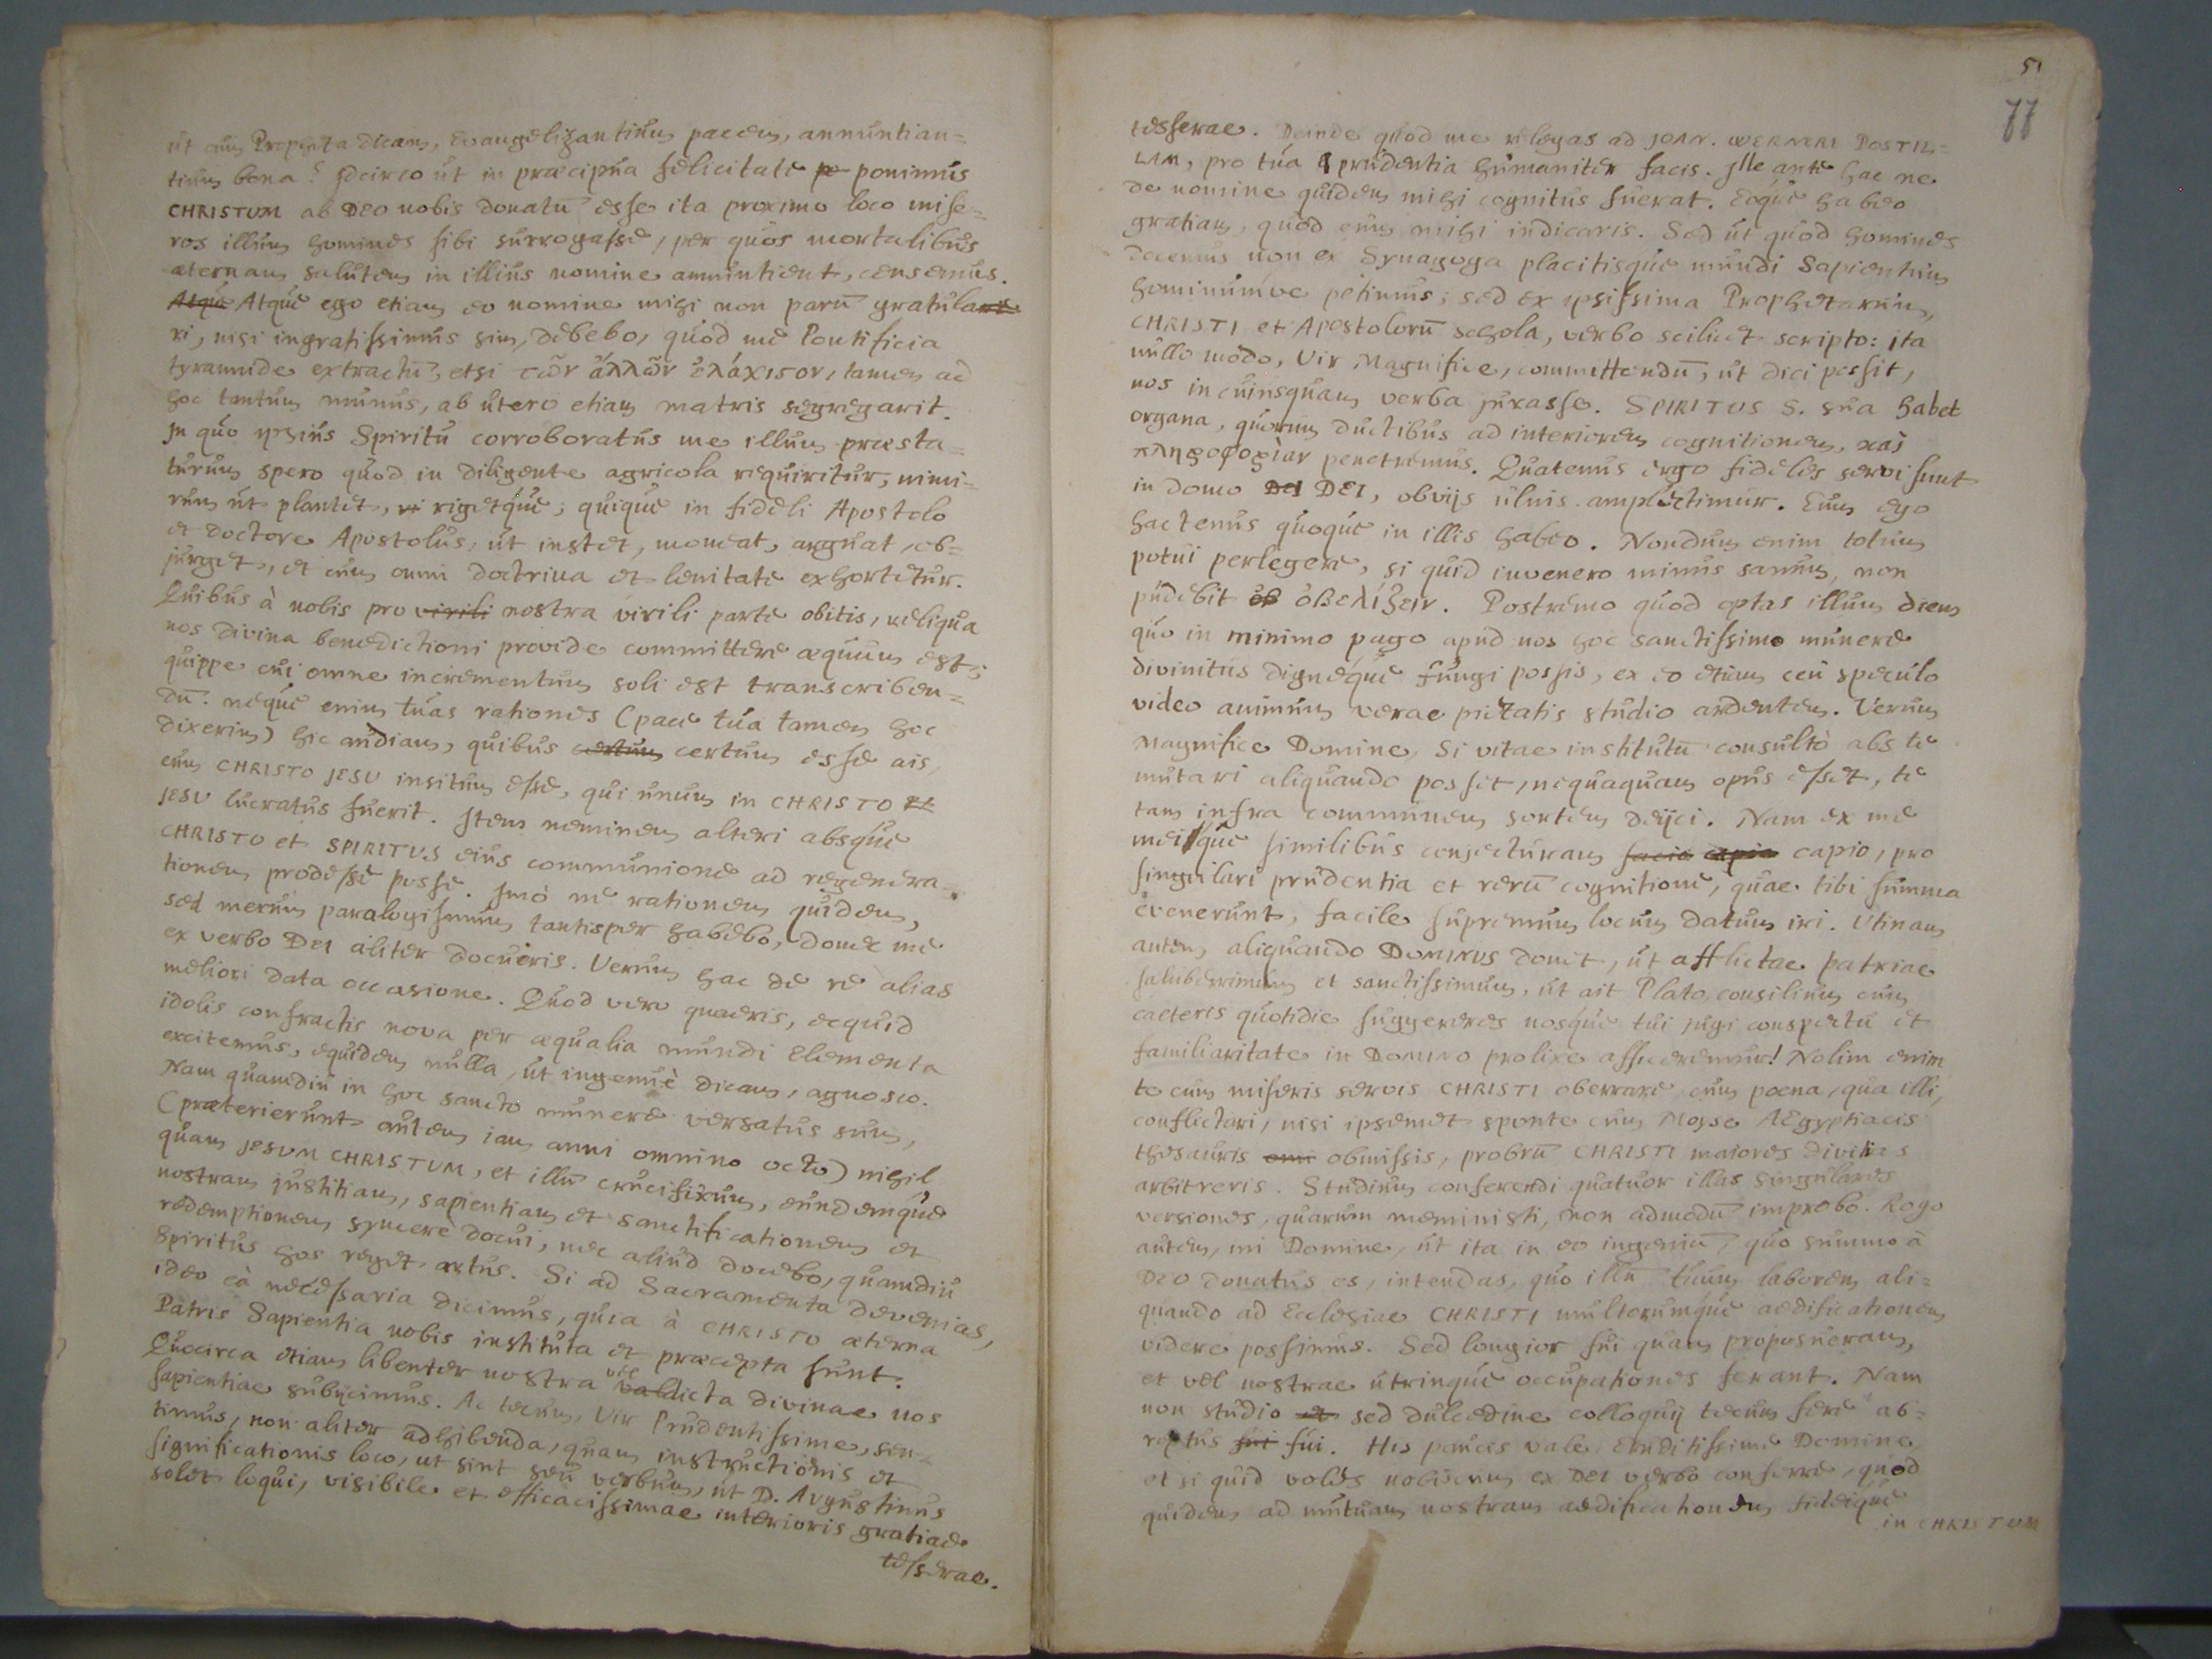 ut cum Propheta dicam, Evangelizantium pacem, annuntian=
tium bona? Idcirco ut in præcipua felicitate po ponimus
CHRISTUM ab DEO nobis donatū esse ita proximo loco mise=
ros illum homines sibi surrogasse, per quos mortalibus
æternam salutem in illius nomine annuntient, censemus.
Atque Atque ego etiam eo nomine mihi non parū gratulari
ri, nisi ingratissimus sim, debebo, quod me Pontificia
tyrannide extractū, etsi τῶν ἄλλῶν ἐλάχιστον, tamen ad
hoc tantum munus, ab utero etiam matris segregarit.
In quo ipsius Spiritu corroboratus me illum præsta=
turum spero quod in diligente agricola requiritur, nimi=
rum ut plantet, ri rigetque; quique in fideli Apostolo
et Doctore Apostolus, ut instet, moneat, arguat, ob=
jurget, et cum omni doctrina et lenitate exhortetur.
Quibus à nobis pro virili nostra virili parte obitis, reliqua
nos divinæ benedictioni provide committere æquum est;
quippe cui omne incrementum soli est transcriben=
dū. neque enim tuas rationes (pace tua tamen hoc
dixerim) hic audiam, quibus certum certum esse ais,
eum CHRISTO JESU insitum esse, qui unum in CHRISTO et
JESU lucratus fuerit. Item neminem alteri absque
CHRISTO et SPIRITUS eius communione ad regenera=
tionem prodesse posse. Imò ne rationem quidem,
sed merum paralogismum tantisper habebo, donec me
ex verbo DEI aliter docueris. Verum hac de re alias
meliori data occasione. Quod vero quaeris, ecquid
idolis confractis nova per æqualia mundi Elementa
excitemus, equidem nulla, ut ingenuè dicam, agnosco.
Nam quamdiu in hoc sancto munere versatus sum,
(præterierunt autem iam anni omnino octo) nihil
quam JESUM CHRISTUM, et illū crucifixum, eundemque
nostram justitiam, sapientiam et sanctificationem et
redemptionem syncerè docui, nec aliud docebo, quamdiu
Spiritus hos reget artus. Si ad Sacramenta devenias,
ideo ea necessaria dicimus, quia à CHRISTO æterna
Patris Sapientia nobis instituta et præcepta sunt.
Quocirca etiam libenter nostra vel valdicta divinae nos
sapientiae subijcimus. Ac tecum, Vir Prudentissime, sen=
timus, non aliter adhibenda, quam instructionis et
significationis loco, ut sint seu verbum, ut D. Augustinus
solet loqui, visibile et efficacissimae interioris gratiae
tesserae.
51
77
tesserae. Deinde quod me relegas ad JOAN. WERNERI POSTIL=
LAM, pro tua prudentia humaniter facis. Ille ante hac ne
de nomine quidem mihi cognitus fuerat. Eoque habeo
gratiam, quod eum mihi indicaris. Sed ut quod homines
docemus non ex Synagoga placitisque mundi Sapientium
hominumve petimus; sed ex ipsissima Prophetarum,
CHRISTI et Apostolorū schola, verbo scilicet scripto: ita
nullo modo, Vir Magnifice, committendū, ut dici possit,
nos in cuiusquam verba jurasse. SPIRITUS S. sua habet
organa, quorum ductibus ad interiorem cognitionem, καὶ
πληροφορίαν penetremus. Quatenus ergo fideles servi sunt
in domo DEI DEI, obvijs ulnis amplectimur. Eum ego
hactenus quoque in illis habeo. Nondum enim totum
potui perlegere, si quid invenero minus sanum, non
pudebit ὀβ ὀβελίζειν. Postremo quod optas illum diem
quo in minimo pago apud nos hoc sanctissimo munere
divinitus digneque fungi possis, ex eo etiam ceu speculo
video animum verae pietatis studio ardentem. Verum
Magnifice Domine, si vitae institutū consultò abs te
mutari aliquando posset, nequaquam opus esset, te
tam infra communem sortem deijci. Nam ex me
meisque similibus conjecturam facio capio capio, pro
singulari prudentia et rerū cognitione, quae tibi summa
evenerunt, facile supremum locum datum iri. Utinam
autem aliquando DOMINUS donet, ut afflictae patriae
saluberrimum et sanctissimum, ut ait Plato, consilium cum
caeteris quotidie suggereres nosque tui jugi conspectu et
familiaritate in DOMINO prolixe afficeremur! Nolim enim
te cum miseris servis CHRISTI oberrare, cum poena, qua illi,
conflictari, nisi ipsemet sponte cum Moyse AEgyptiacis
thesauris omi obmissis, probrū CHRISTI maiores divitias
arbitreris. Studium conferendi quatuor illas singulares
versiones, quarum meministi, non admodū improbo. Rogo
autem, mi Domine, ut ita in eo ingeniū, quo summo à
DEO donatus es, intendas, quo illū tuum laborem ali=
quando ad Ecclesiae CHRISTI multorumque aedificationem
videre possimus. Sed longior fui quam proposueram,
et vel nostrae utrinque occupationes ferant. Nam
non studio et sed dulcedine colloquij tecum fere ab=
reptus fui fui. His paucis vale Eruditissime Domine
et si quid voles nobiscum ex DEI verbo conferre, quod
quidem ad mutuam nostram aedificationem fideique
in CHRISTUM